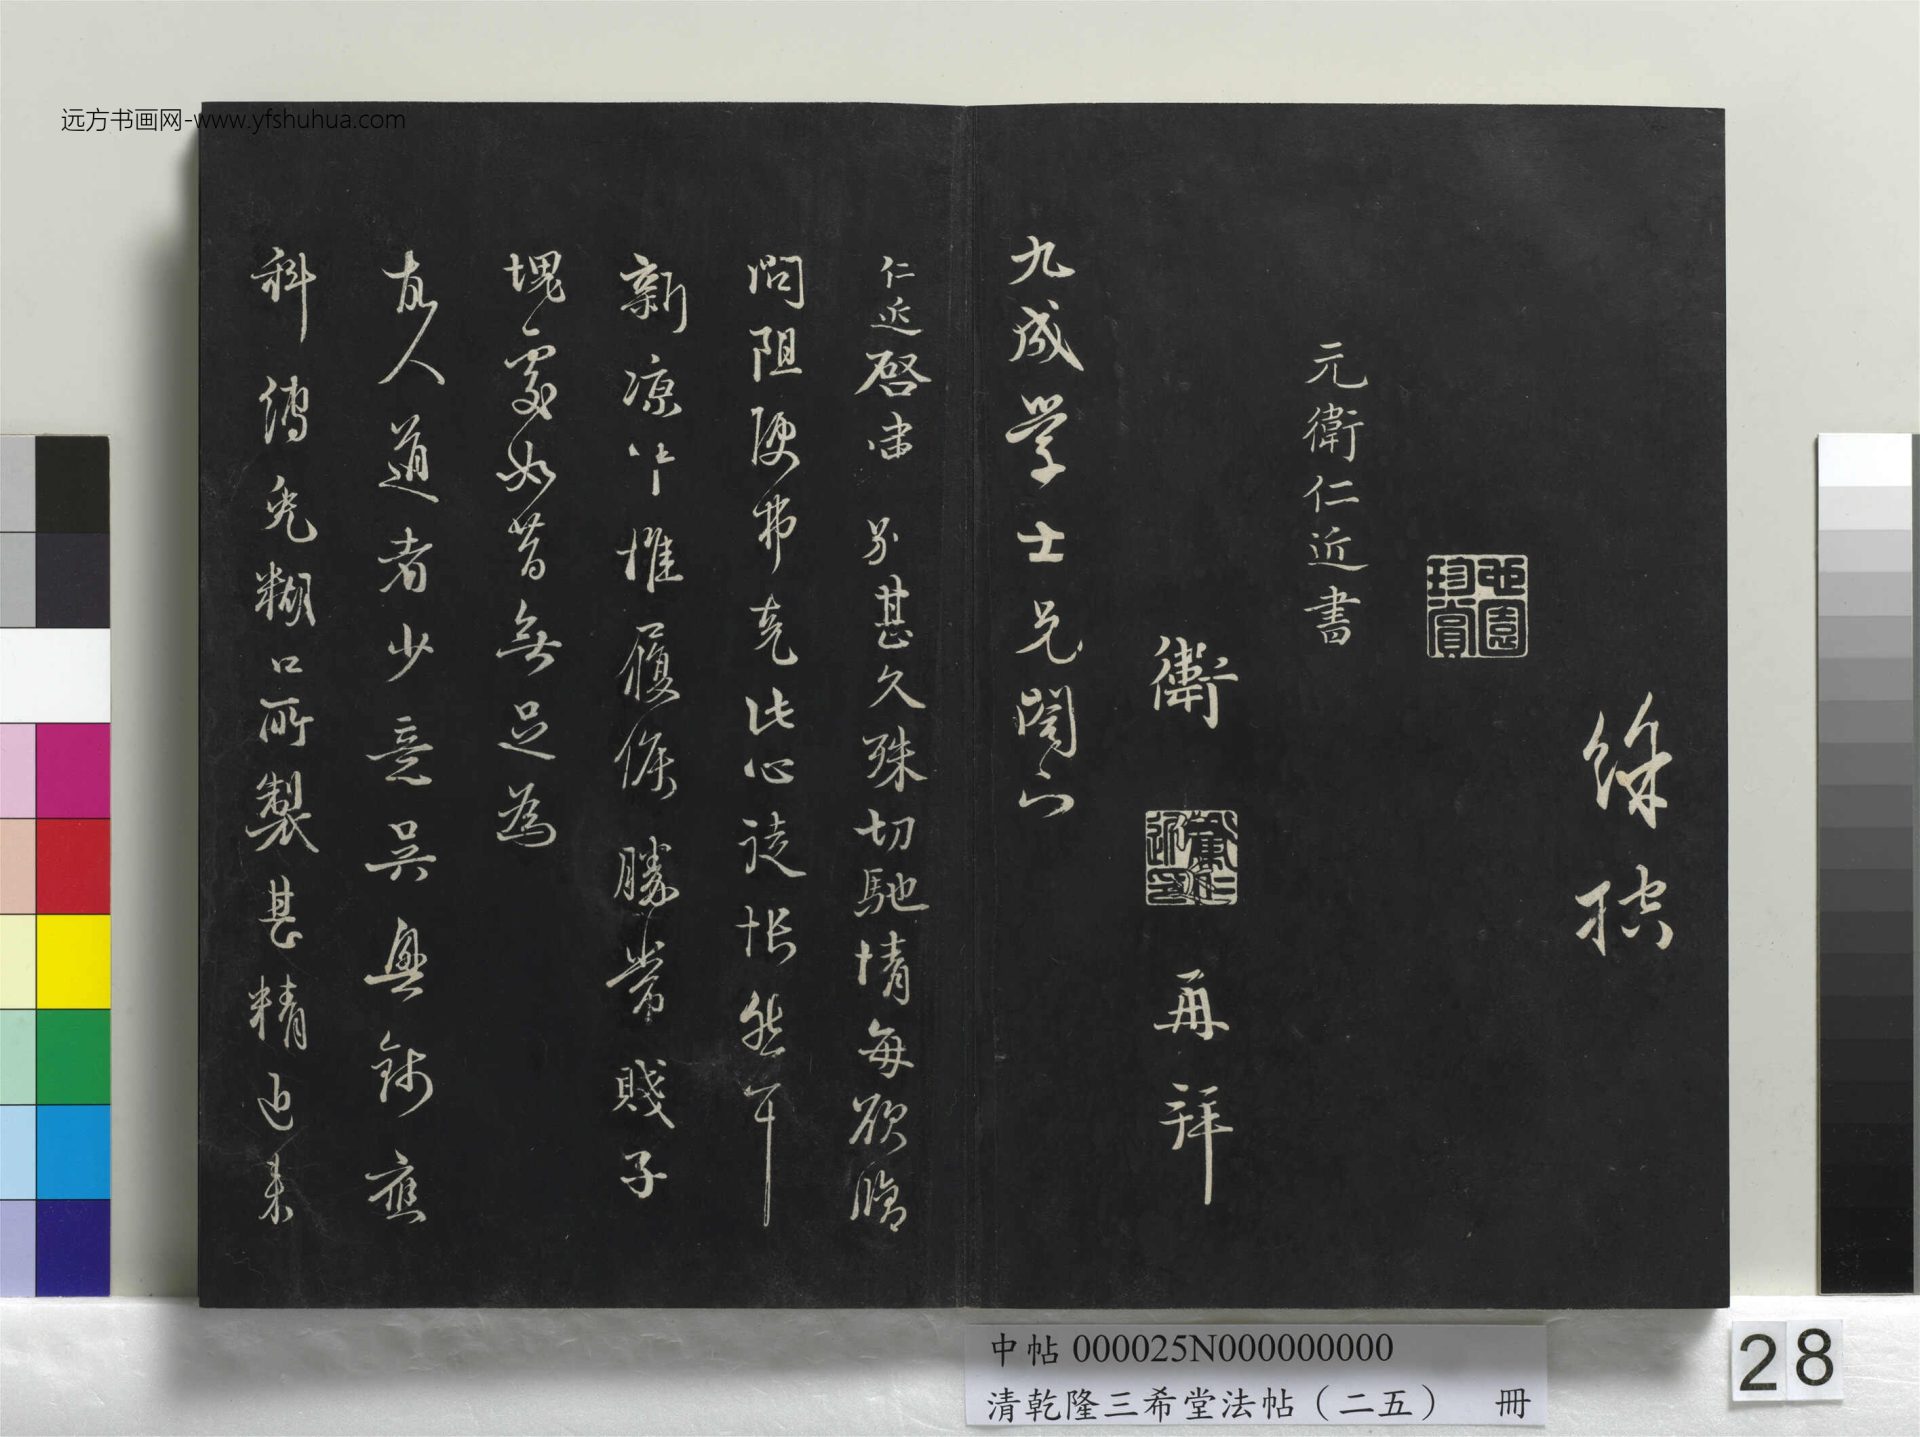 远方书画网-www.yfshuhua.com
徐
珍賞
元衛仁近書
衛
再拜
九成学士兄閣下
仁近啓 別甚久殊切馳情每欲
問阻便弗克此心徒悵然
新凉惟履候勝常賤子
塊處如昔無足為
故人道者少意吳興錢應
科傳兔糊口所製甚精近来
中帖 000025N000000000
清乾隆三希堂法帖（二五） 冊
28